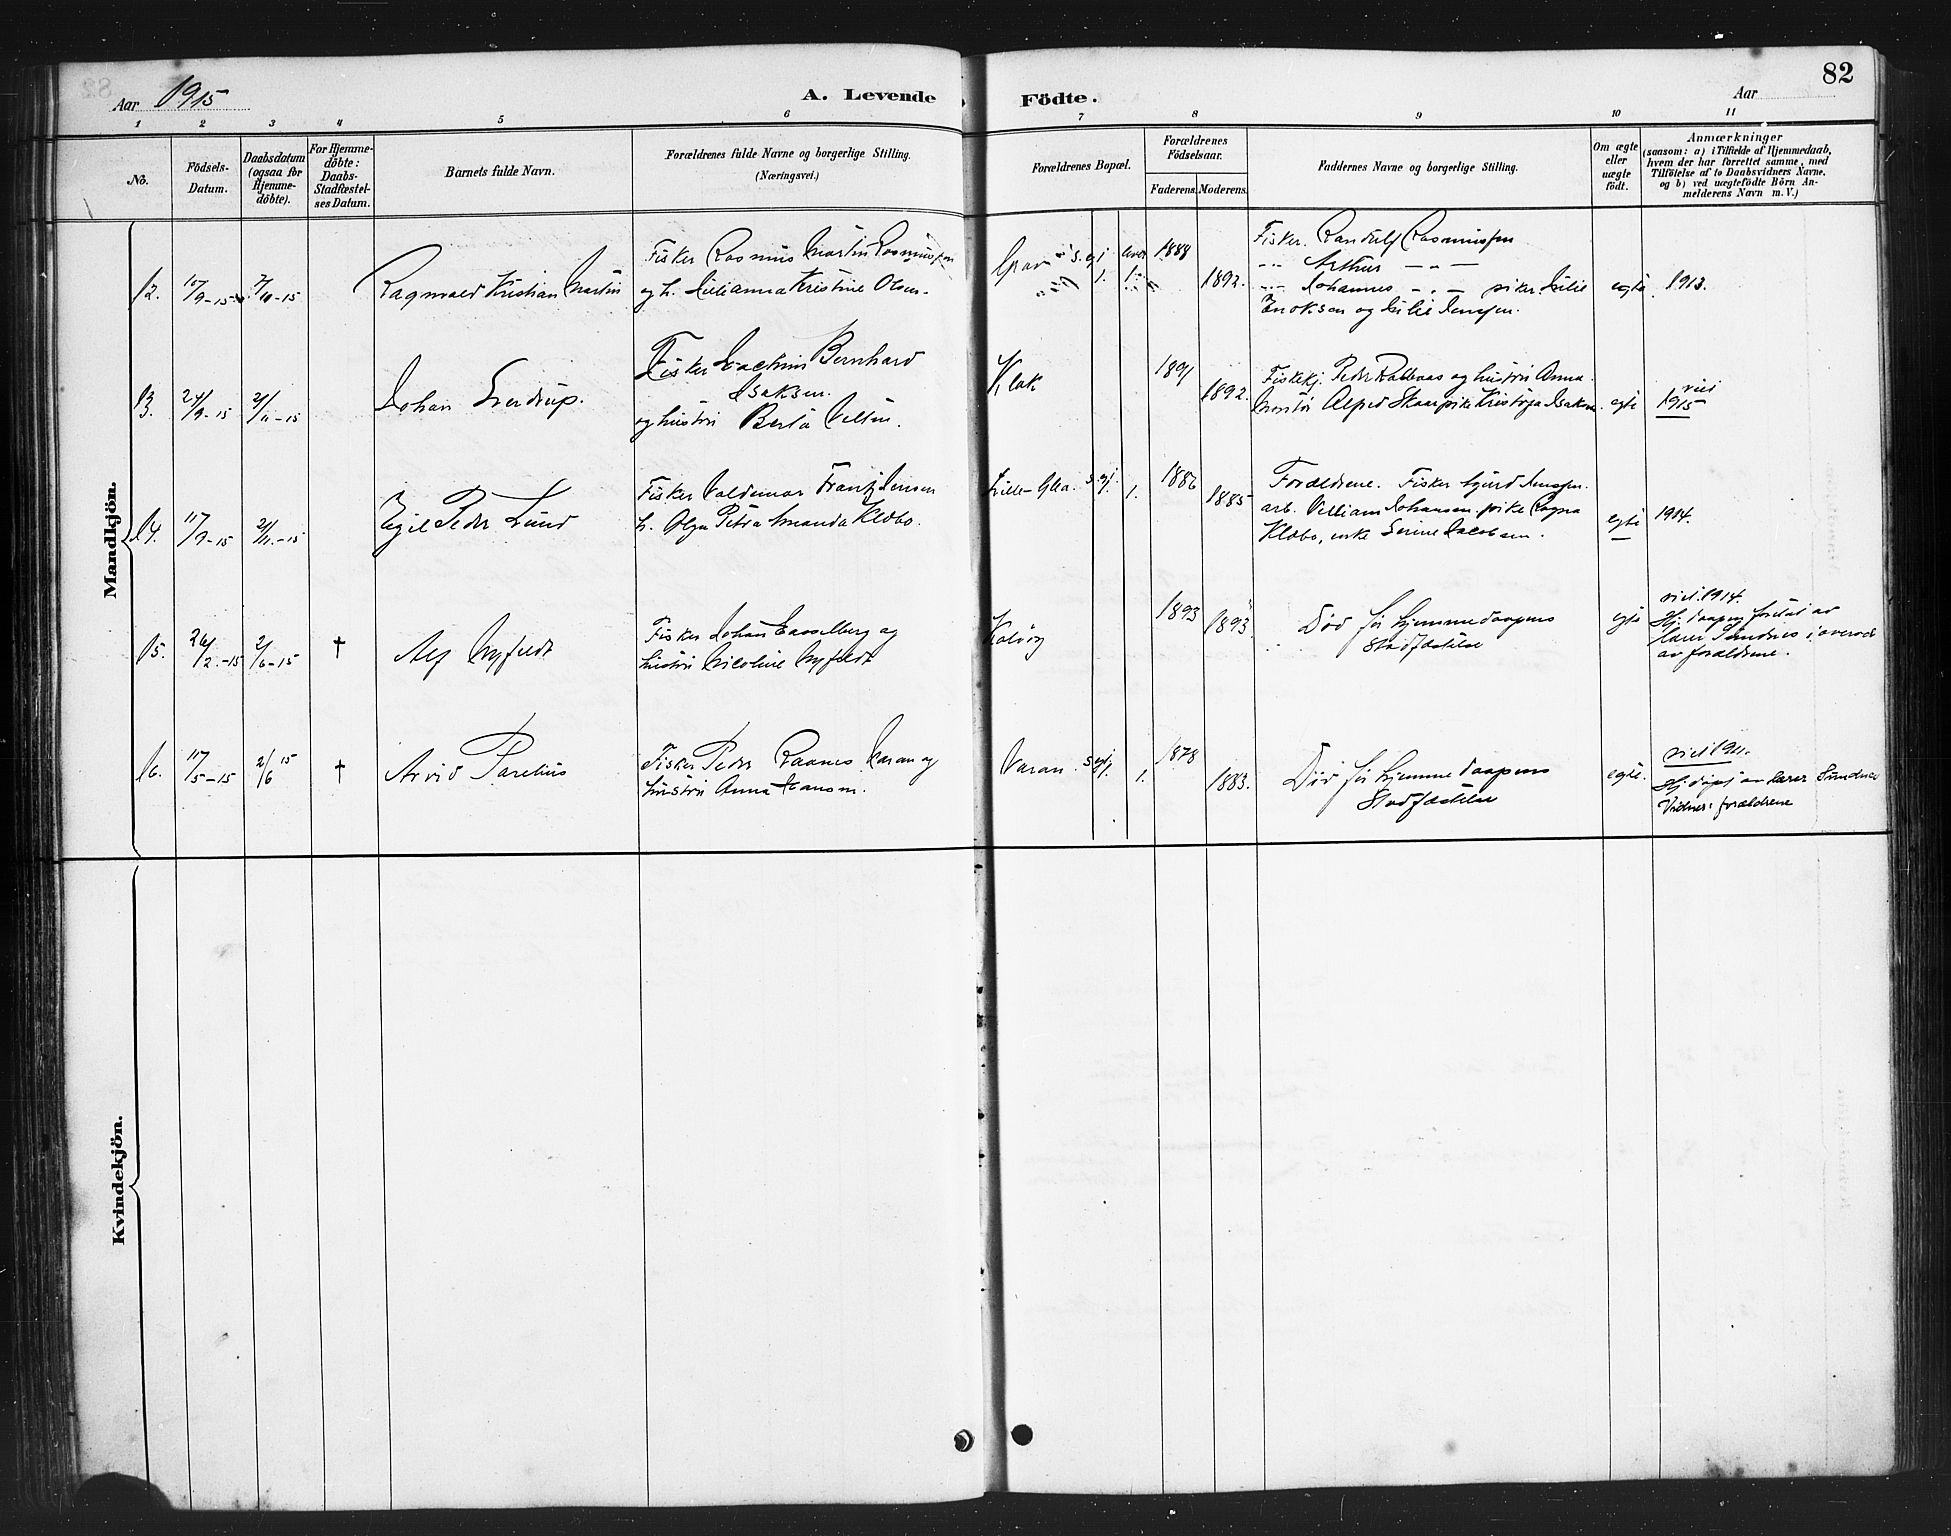 82
Aar 1915
A. Levende
Födte.
Aar
1 2 3 4 5 6 7 8 9 10 11
No.
Födsels-
Datum.
Daabsdatum
(ogsaa for
Hjemme-
döbte).
For Hjemme-
döbte:
Daabs-
Stadfæstel-
ses Datum.
Barnets fulde Navn.
Forældrenes fulde Navne og borgerlige Stilling.
(Næringsvei.)
Forældrenes Bopæl.
Forældrenes
Födselsaar.
Faderens. Moderens.
Faddernes Navne og borgerlige Stilling.
Om ægte
eller
uægte
födt.
Anmærkninger
(saasom: a) i Tilfælde af Hjemmedaab,
hvem der har forrettet samme, med
Tilföielse af to Daabsvidners Navne,
og b) ved uægtefödte Börn An-
melderens Navn m. V.)
Mandkjön.
12.
Ragnvald Kristian Martin
Fisker Rasmus Martin Rasmussen
og h. Lillianna Kristine Olsen.
1888
1892.
Fisker. Randulf Rasmussen
-"- Arthur -"-
-"- Johannes -"- piker Lilie
Enoksen og Lilie Jenssen.
egte
1913.
13.
Johan Sverdrup.
Fisker Joachim Bernhard
Isaksen.
og hustru Berta
Klak
1891
1892.
og hustru Anna
Alfred Skaar pike Isaksen.
egte
viet
1915
14.
Egil Peder Lund
Fisker Valdemar Frantz Jensen
h. Olga Petra Amanda Klæbo.
Lille-
1886
1885
Forældrene. Fisker Sjurd Jenssen.
arb. Villiam Johansen pike Ragna
Klæbo, enke Serine Jacobsen.
egte
1914.
15.
26/2.-15
2/6-15
†
Alf Nyfeldt
Fisker Johan Hasselberg og
hustru Nicoline Nyfeldt
Kalvøy
1893
1893
Död för hjemmedaapens
Stadfæstelse
egte
viet. 1914.
Hj. daapen foretat av
lærer Sundnes i overvær
av forældrene.
16.
17/5-15
2/6 15
†
Arvid Parelius
Fisker Peder Raanes Varan og
hustru Anna Hanson.
Varan.
1878
1883.
Död för hjemmedaapens
Stadfæstelse
egte.
viet 1911.
Hj. döpt av lærer Sundnes
Vidner: forældrene
Kvindekjön.